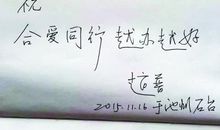 祝
合爱同行 越办越好
赵普
2015.11.16 于池州石台